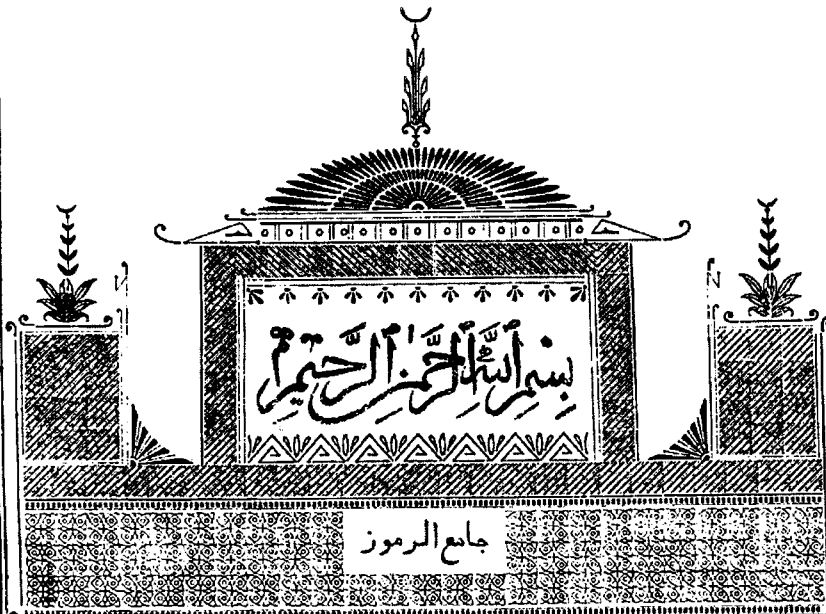 بِسْمِ اللهِ الرَّحْمٰنِ الرَّحِيمِ
جامع الرموز